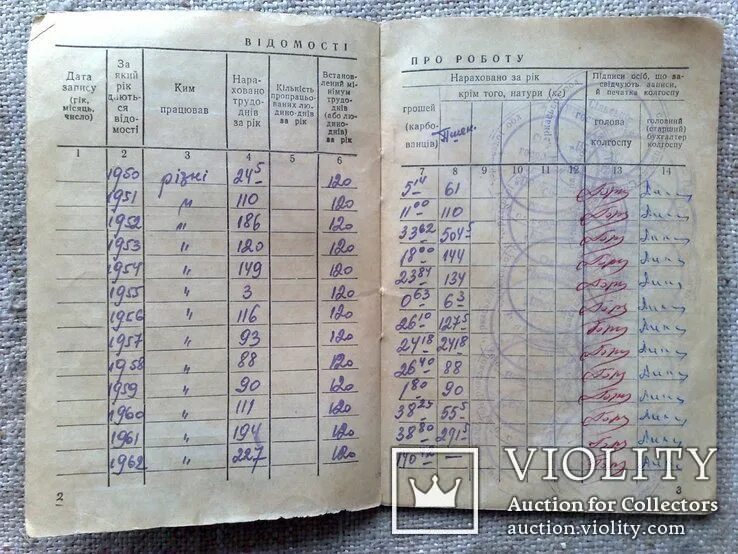 ВІДОМОСТІ
Дата запису (рік, місяць, число)
За який рік
відомості
Ким працював
Нара-
ховано
трудо-
днів
за рік
Кількість
за рік
Встанов-
лений мі-
німум
трудо-
днів
(або лю-
дино-
днів)
за рік
1 2 3 4 5 6
1950 різні 24⁵ 120
1951 " 110 120
1952 " 186 120
1953 " 120 120
1954 " 149 120
1955 " 3 120
1956 " 116 120
1957 " 93 120
1958 " 88 120
1959 " 90 120
1960 " 111 120
1961 " 194 120
1962 " 227 120
2
ПРО РОБОТУ
Нараховано за рік
грошей
(карбо-
ванців)
крім того, натури (кг)
Пшен.
Підписи осіб, що за-
свідчують записи,
й печатка колгоспу
голова
колгоспу
головний
(старший)
бухгалтер
колгоспу
7 8 9 10 11 12 13 14
5¹⁴ 61
11⁰⁰ 110
33⁶² 504⁵
18⁰⁰ 144
23⁸⁴ 134
0⁶³ 6³
26¹⁰ 127⁵
24¹⁸ 24¹⁸
26⁴⁰ 88
1⁸⁰ 90
38²⁵ 55⁵
38⁸⁰ 291⁵
3
VIOLITY
Auction for Collectors
auction.violity.com